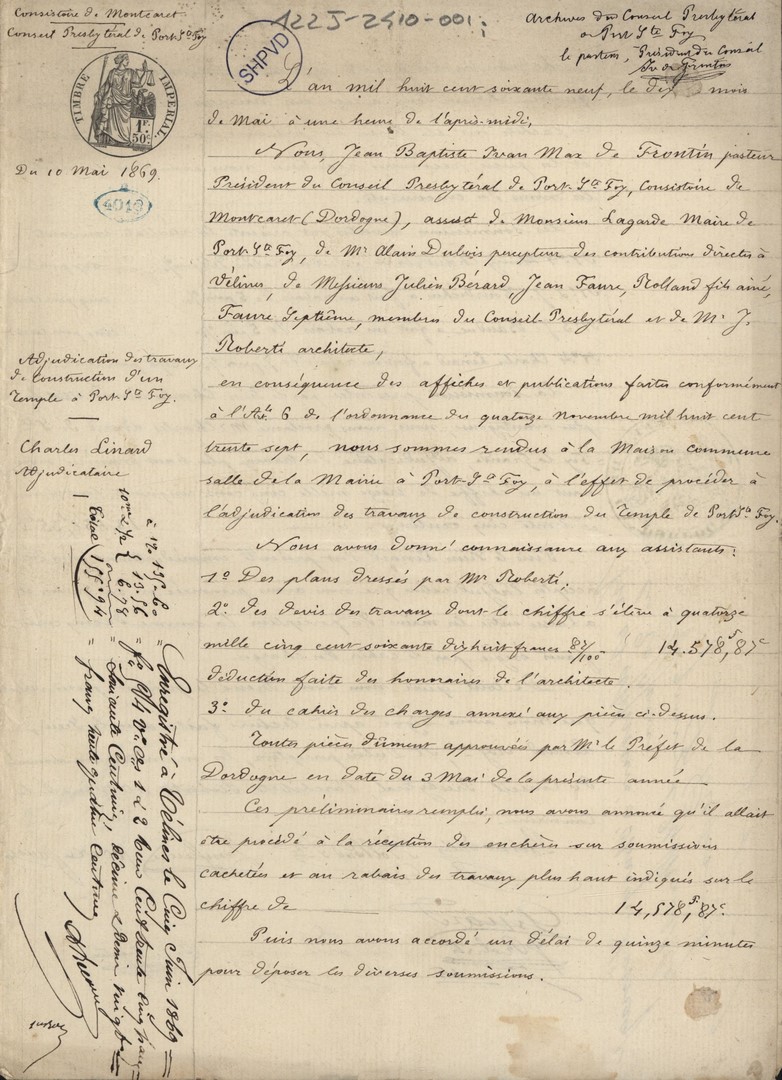 Consistoire de Montcaret
Conseil Presbytéral de Port Ste Foy
122J-2410-001
SHPVD
Archives du Conseil Presbytéral
de Port Ste Foy
le pasteur, Président du Conseil
Iv. de Frontin
TIMBRE IMPÉRIAL
1F.
50c
Du 10 Mai 1869.
4013
Adjudication des travaux
de Construction d'un
Temple à Port Ste Foy.
Charles Linard
Adjudicataire
L'an mil huit cent soixante neuf, le dix mois
de Mai à une heure de l'après-midi,
Nous, Jean Baptiste Ivan Max de Frontin pasteur
Président du Conseil Presbytéral de Port-Ste Foy, Consistoire de
Montcaret (Dordogne), assisté de Monsieur Lagarde Maire de
Port-Ste Foy, de Mr Alain Dubois percepteur des contributions directes à
Vélines, de Messieurs Julien Bérard, Jean Faure, Rolland fils ainé,
Faure Septième, membres du Conseil-Presbytéral et de Mr J.
Roberti architecte,
en conséquence des affiches et publications faites conformément
à l'Art. 6 de l'ordonnance du quatorze novembre mil huit cent
trente sept, nous sommes rendus à la Maison commune
salle de la Mairie à Port-Ste Foy, à l'effet de procéder à
l'adjudication des travaux de construction du Temple de Port Ste Foy.
Nous avons donné connaissance aux assistants:
1o Des plans dressés par Mr Roberti;
2o des devis des travaux dont le chiffre s'élève à quatorze
mille cinq cent soixante dix huit francs 87/100 14.578f,87c
déduction faite des honoraires de l'architecte.
3o du cahier des charges annexé aux pièces ci-dessus.
Toutes pièces dûment approuvées par Mr le Préfet de la
Dordogne en date du 3 Mai de la présente année
Ces préliminaires remplis, nous avons annoncé qu'il allait
être procédé à la réception des enchères sur soumissions
cachetées et au rabais des travaux plus haut indiqués sur le
chiffre de 14,578f,87c.
Puis nous avons accordé un délai de quinze minutes
pour déposer les diverses soumissions.
Enregistré à Vélines le Cinq Juin 1869
fo 9/4 Vo Cs 1 à 2 Reçu Cent trente cinq francs
Soixante Centimes, décime & demi vingt
francs trente quatre Centimes
à 1 % 135-60
10me & 1/2 { 13.56
6.78
Total 155.94